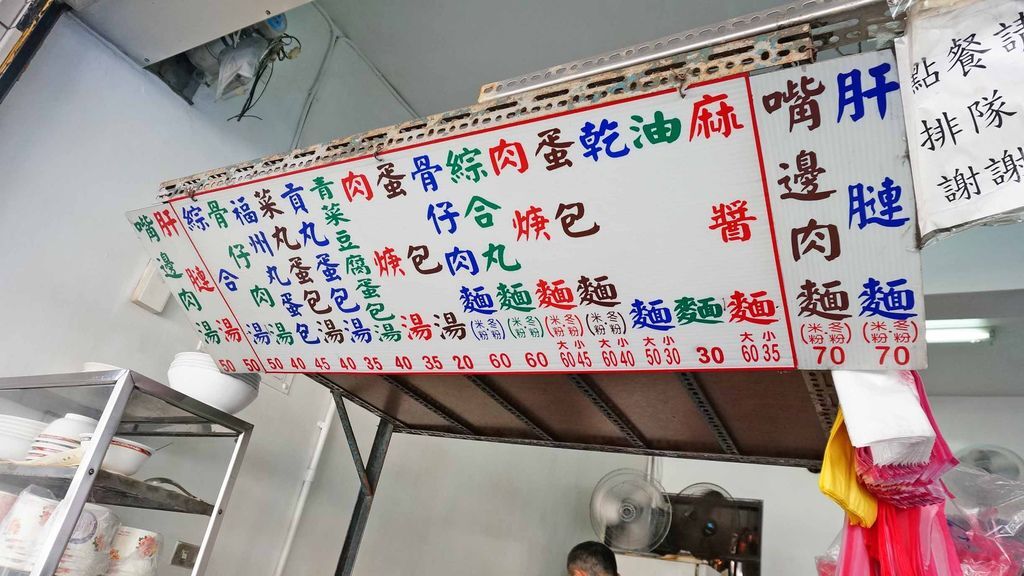 點餐請
排隊
謝謝
肝腱麵(米粉)(冬粉)70
嘴邊肉麵(米粉)(冬粉)70
麻醬麵 大60小35
油麵 30
乾麵 大50小30
蛋包麵(米粉)(冬粉)大60小40
肉焿麵(米粉)(冬粉)大60小45
綜合丸麵(米粉)(冬粉)60
骨仔肉麵(米粉)(冬粉)60
蛋包湯 20
肉焿湯 35
青菜豆腐蛋包湯 40
貢丸蛋包湯 35
菜丸蛋包湯 40
福州丸蛋包湯 45
骨仔肉湯 40
綜合湯 50
肝腱湯 50
嘴邊肉湯 50